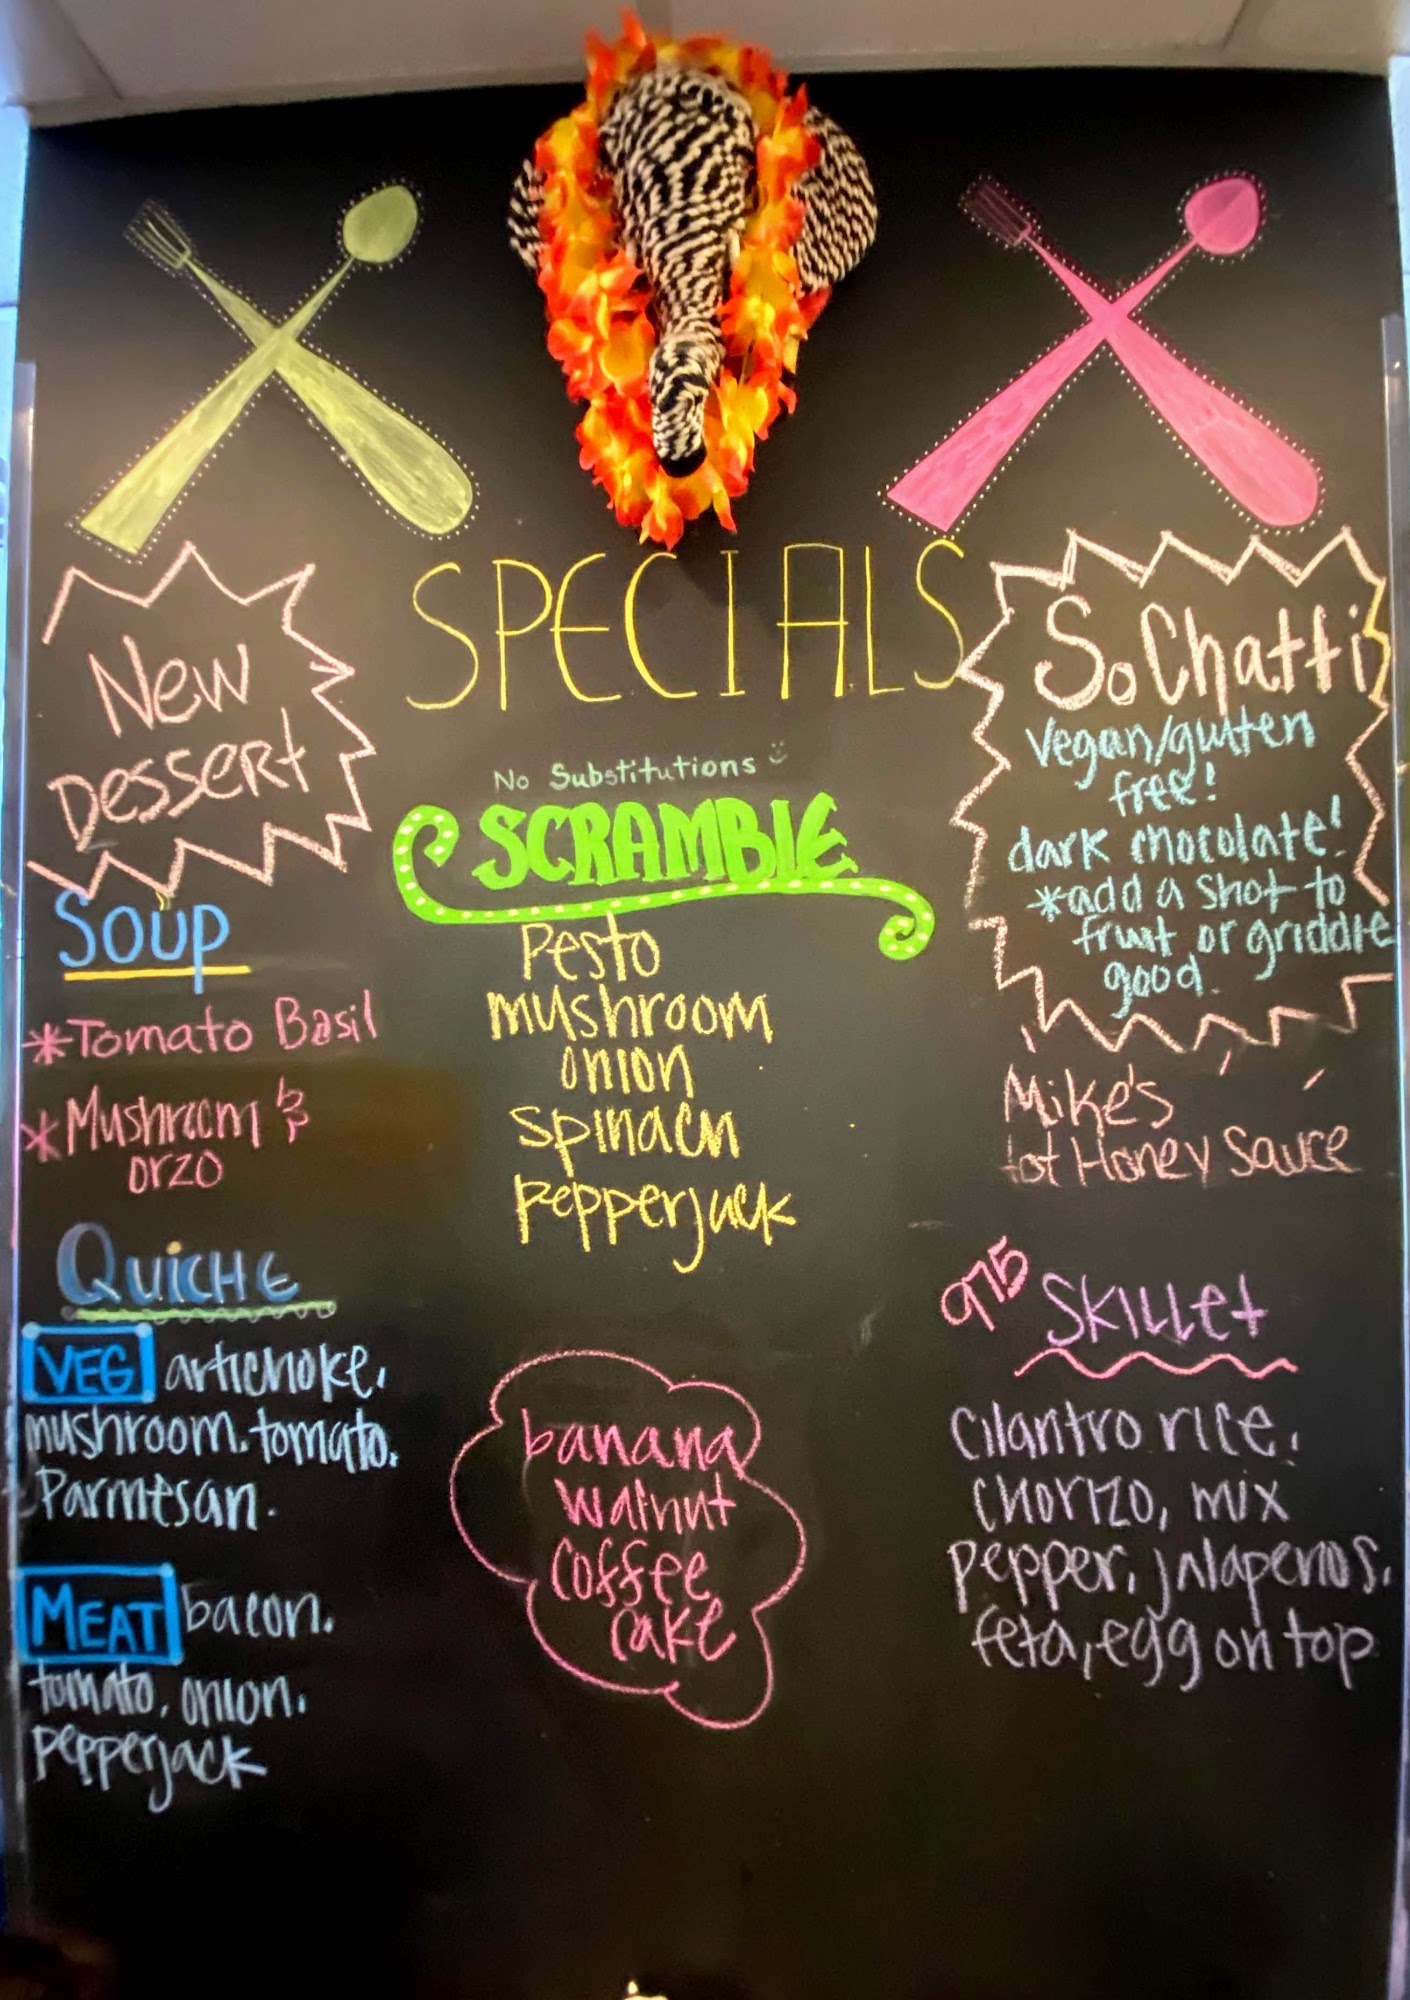 SPECIALS
New
Dessert
Soup
*Tomato Basil
*Mushroom &
orzo
Quiche
VEG artichoke,
mushroom, tomato,
Parmesan.
MEAT bacon,
tomato, onion,
pepperjack
No Substitutions
SCRAMBLE
Pesto
mushroom
onion
spinach
pepperjack
banana
walnut
coffee
cake
So Chatti
vegan/gluten
free!
dark chocolate!
*add a shot to
fruit or griddle
good.
Mike's
Hot Honey Sauce
975
Skillet
cilantro rice,
chorizo, mix
pepper, jalapenos,
feta, egg on top